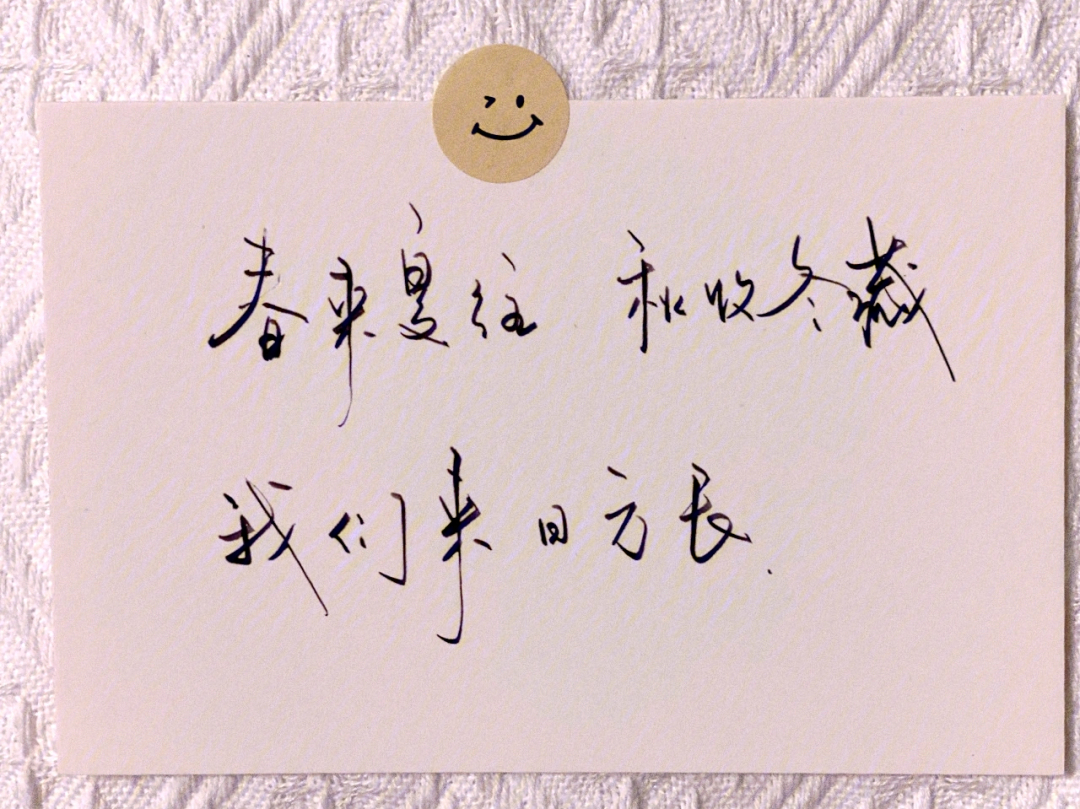 春来夏往 秋收冬藏
我们来日方长.